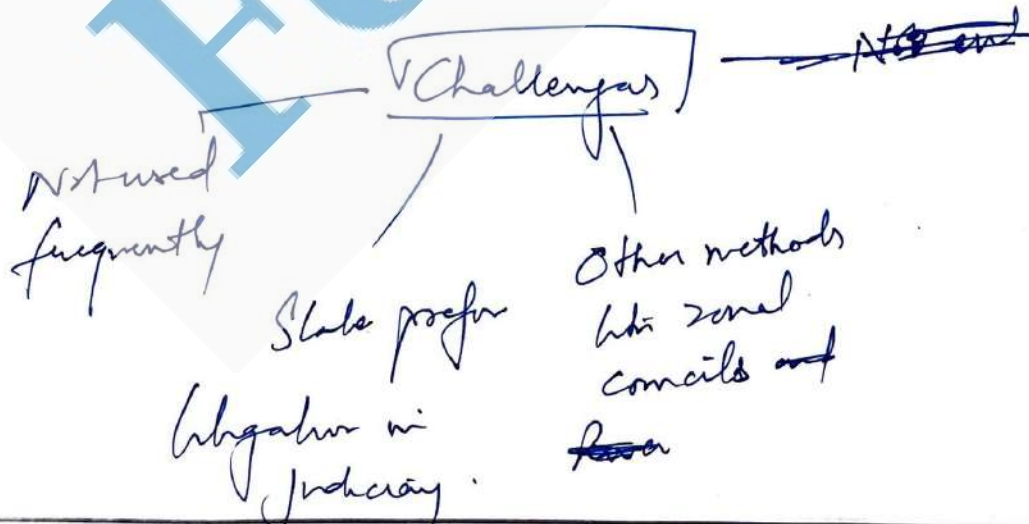 Challenges
Not used
frequently
State prefer
litigation in
Judiciary.
Other methods
like zonal
councils